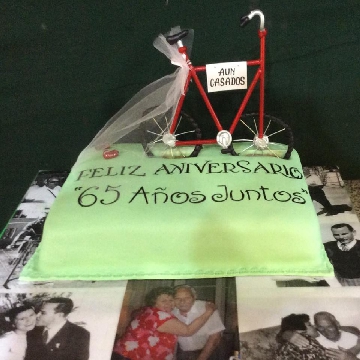 AUN
CASADOS
FELIZ ANIVERSARIO
"65 Años Juntos"